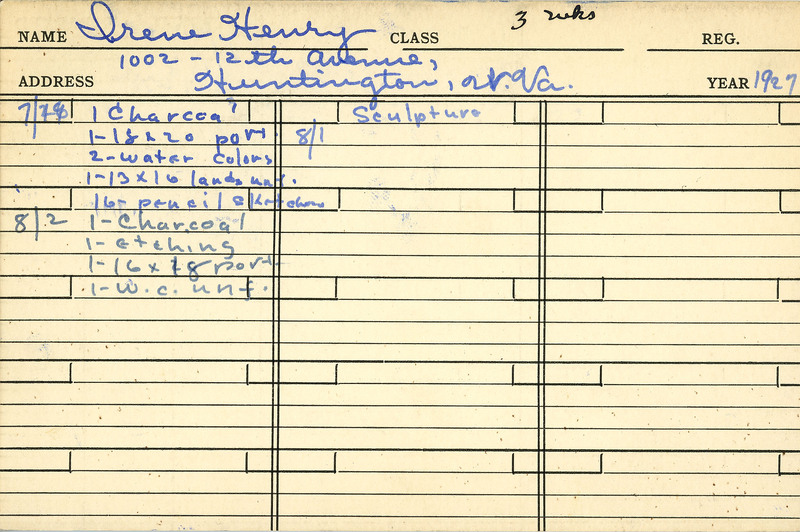 3 wks
NAME Irene Henry CLASS REG.
1002 - 12th Avenue,
ADDRESS Huntington, W. Va. YEAR 1927
1 Charcoal Sculpture
1-18x20 port. 8/1
2-water colors
1-13x16 lands unf.
16- pencil sketches
8/2 1-Charcoal
1-etching
1-16x18 port.
1-W.C. unf.